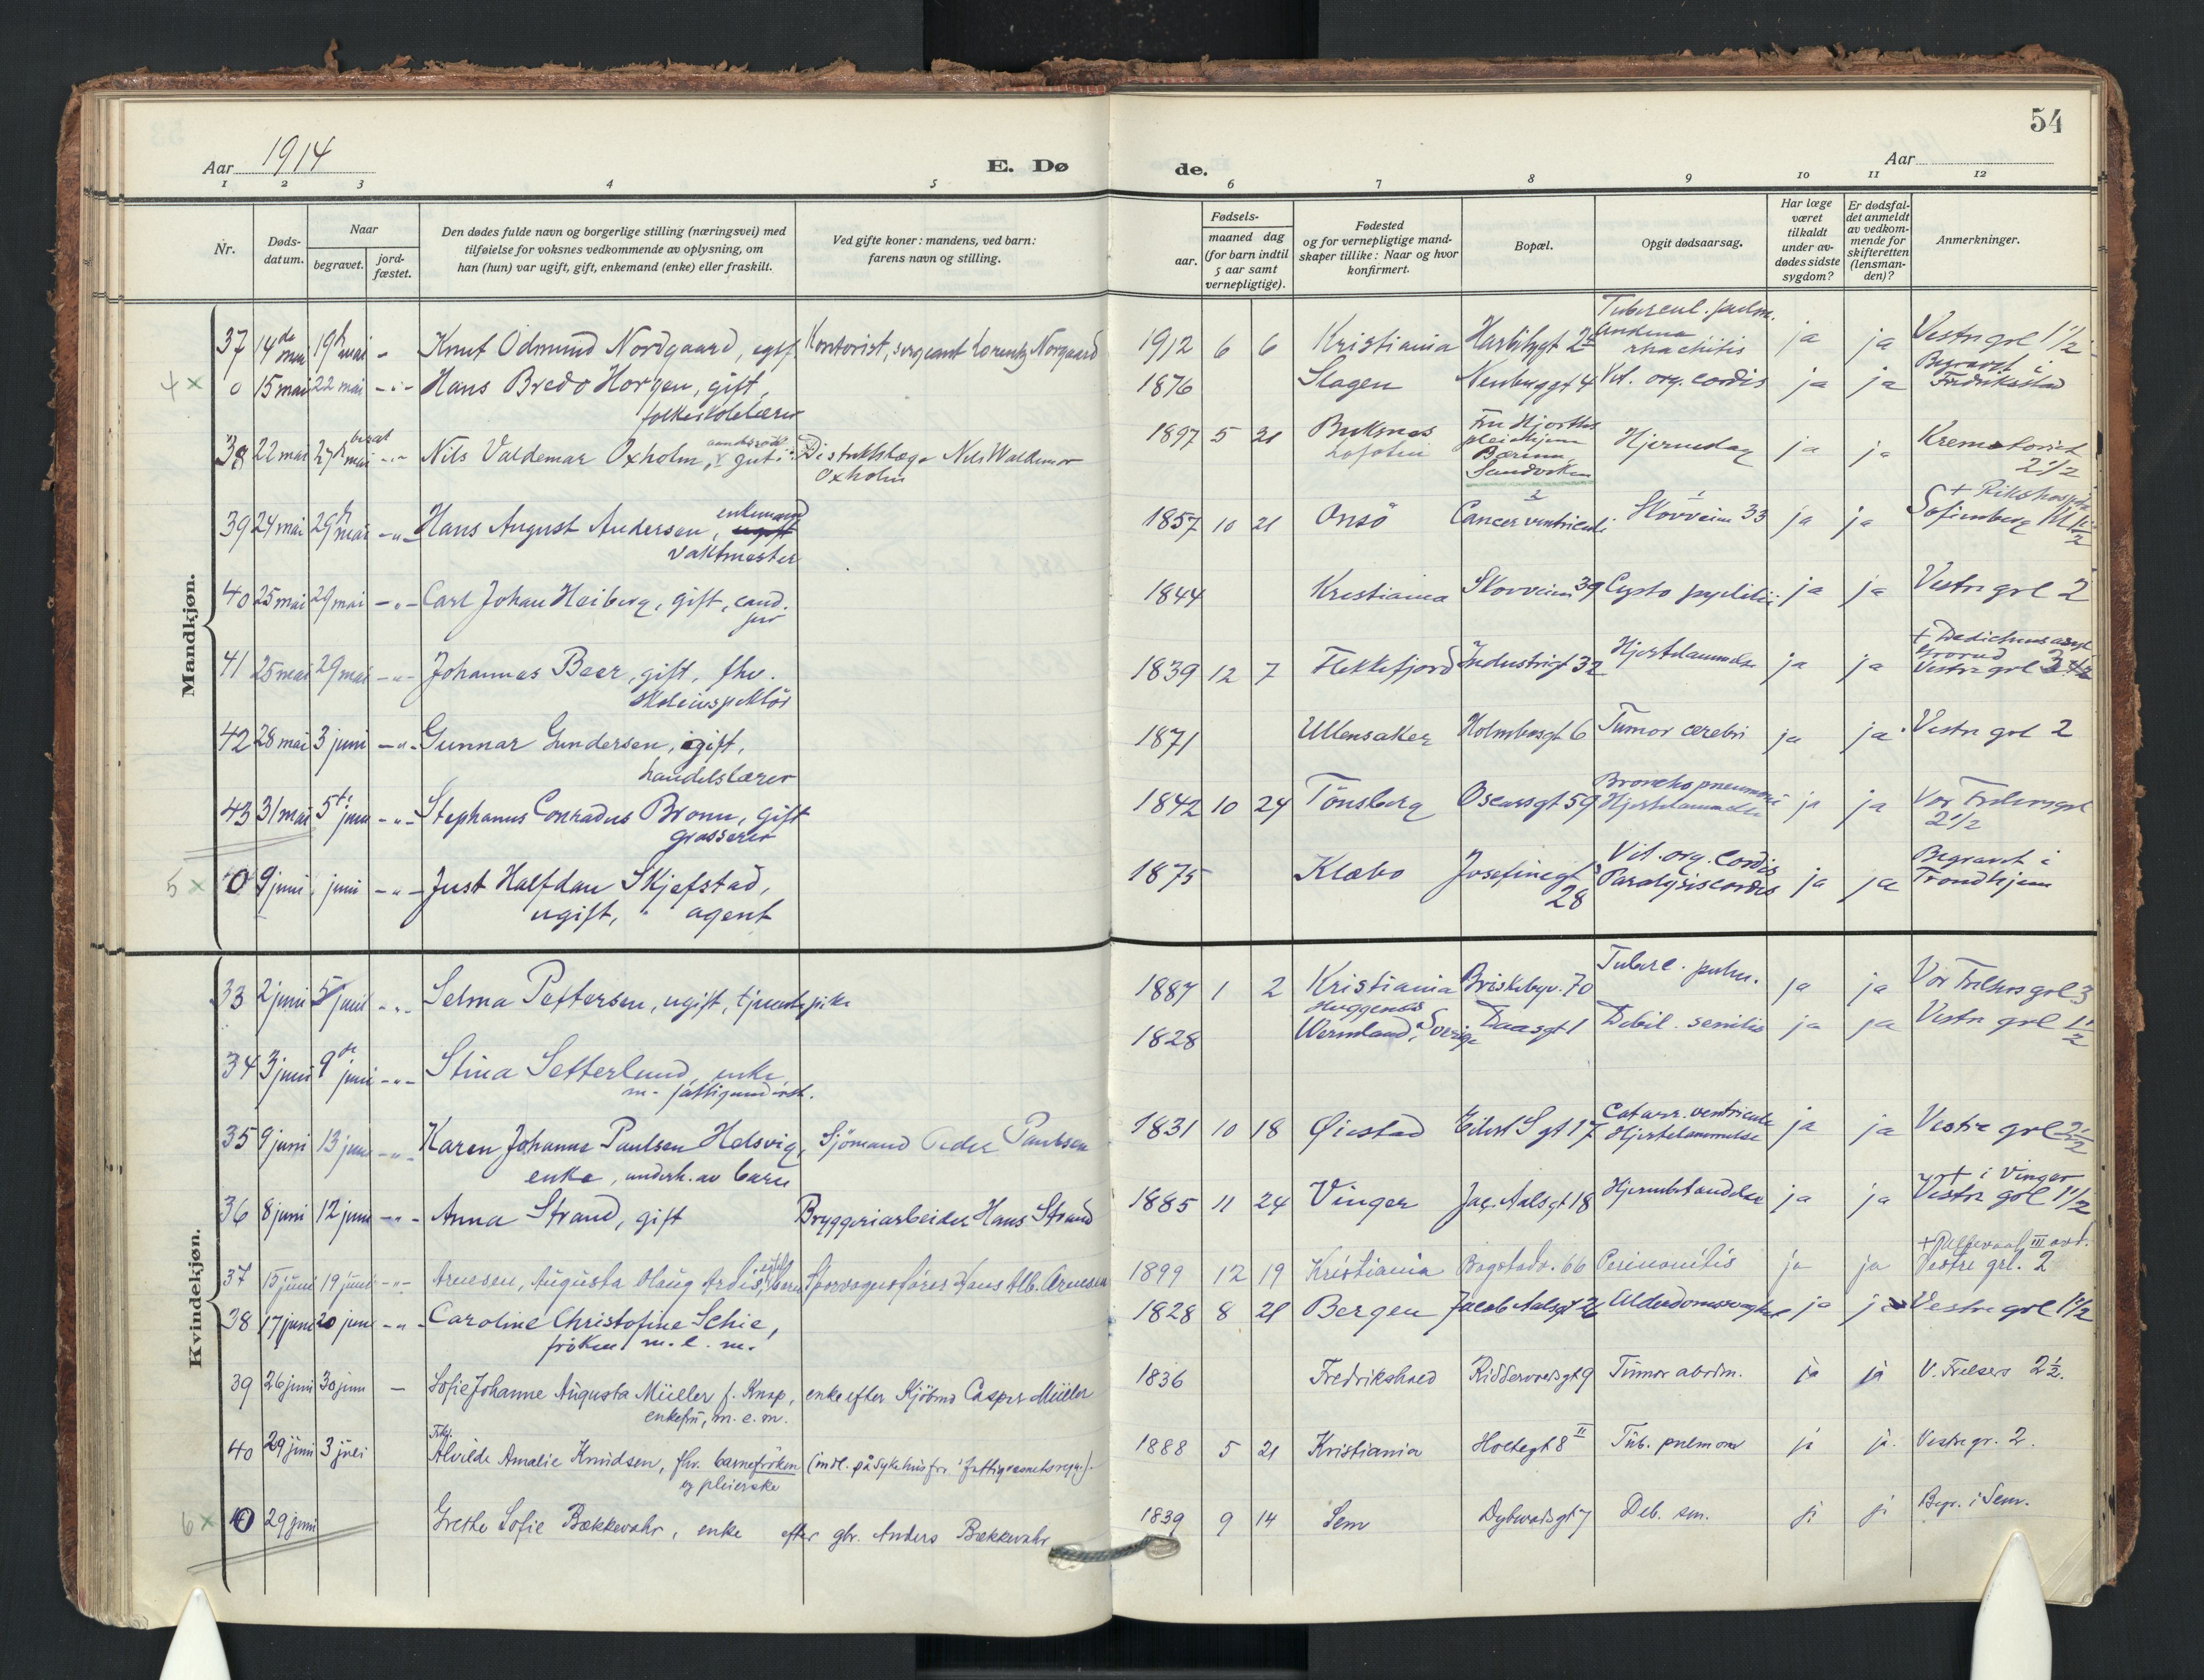 54
Aar 1914
E. Dø
de.
Aar
1 2 3 4 5 6 7 8 9 10 11 12
Nr.
Døds-
datum.
Naar
begravet.
jord-
fæstet.
Den dødes fulde navn og borgerlige stilling (næringsvei) med
tilføielse for voksnes vedkommende av oplysning, om
han (hun) var ugift, gift, enkemand (enke) eller fraskilt.
Ved gifte koner: mandens, ved barn:
farens navn og stilling.
Fødsels-
aar.
maaned dag
(for barn indtil
5 aar samt
vernepligtige).
Fødested
og for vernepligtige mand-
skaper tillike: Naar og hvor
konfirmert.
Bopæl.
Opgit dødsaarsag.
Har læge
været
tilkaldt
under av-
dødes sidste
sygdom?
Er dødsfal-
det anmeldt
av vedkom-
mende for
skifteretten
(lensman-
den)?
Anmerkninger.
Mandkjøn.
37 14de mai 19 mai - Knut Odmund Nordgaard, Kontorist, sergeant Lorentz Norgaard 1912 6 6 Kristiania Tubercul. pulm. rhachitis ja ja Vestre grl 1 1/2
4 x 0 15 mai 22 mai - " - Hans Bredo Horgen, gift, 1876 Slagen 4 Vit. org. cordis ja ja Begravet i Fredriksstad
folkeskolelærer
38 22 mai 27 mai - " - Nils Valdemar Oxholm, gut Distriktslæge Nils Waldemar Oxholm 1897 5 21 Buksnes Lofoten Fru Hjorths pleiehjem Bærum Sandviken Hjerneslag ja ja Krematoriet 2 1/2
39 24 mai 29 mai - " - Hans August Andersen, enkemand 1857 10 21 Onsö Cancer ventriculi Skovveien 33 ja ja + Rikshospit. Sofienberg
vaktmester
40 25 mai 29 mai - " - Carl Johan Heiberg, gift, cand. jur 1844 Kristiania Skovveien 39 Cysto pyelitis ja ja Vestre grl 2
41 25 mai 29 mai - " - Johannes Beer, gift, fhv. 1839 12 7 Flekkefjord Industrigt 32 Hjertelammelse ja ja + Dedichens asyl Vestre grl
skoleinspektör
42 28 mai 3 juni - " - Gunnar Gundersen, gift, 1871 Ullensaker Holmbosgt 6 Tumor cerebri ja ja Vestre grl 2
handelslærer
43 31 mai 5te juni - " - Stephanus Conradus Bronn, gift 1842 10 24 Tönsberg Oscarsgt 59 Bronchopneumoni Hjertelammelse ja ja Vor Frelsersgrl 2 1/2
grosserer
5 x 0 9 juni juni - " - Just Halfdan Skjefstad, 1875 Klæbo Josefinegt 28 Vit. org. Cordis Paralysis cordis ja ja Begravet i Trondhjem
ugift, agent
Kvindekjøn.
33 2 juni 5 juni - " - Selma Pettersen, ugift, tjenestepike 1887 1 2 Kristiania Briskebyv. 70 Tuberc. pulm. ja ja Vor Frelsers grl 3
34 3 juni 9 juni - " - Stina Setterlund, enke 1828 Huggenäs Wermland, Sverige Daasgt 1 Debil. senilis ja ja Vestre grl 1 1/2
m. fattigunderst.
35 9 juni 13 juni - " - Karen Johanne Paulsen Helsvig, Sjömand Peder Paulsen 1831 10 18 Øiestad Eilert S gt 17 Catarr. ventriculi Hjertelammelse ja ja Vestre grl 2 1/2
enke, underh. av barn
36 8 juni 12 juni - " - Anna Strand, gift Bryggeriarbeider Hans Strand 1885 11 24 Vinger Jac. Aalsgt 18 Hjernebetændelse ja ja + i Vinger Vestre grl 1 1/2
37 15 juni 19 juni - " - Arnesen, Augusta Olaug Ardis, barn Sporvognsfører Hans Alb. Arnesen 1899 12 19 Kristiania Bogstadv. 66 Peritonitis ja ja + Ullevaal III avd. Vestre grl. 2
38 17 juni 20 juni - " - Caroline Christofine Schie, 1828 8 21 Bergen Jacob Aalsgt 26 Alderdomssvaghet ja ja Vestre grl 1 1/2
fröken m. e. m.
39 26 juni 30 juni - Sofie Johanne Augusta Müller f. Knap, enke efter Kjöbmd Casper Müller 1836 Fredrikshald Riddervoldsgt 9 Tumor abdom. ja ja V. Frelsers 2 1/2.
enkefru, m. e. m.
40 29 juni 3 juli Frk. Alvilde Amalie Knudsen, fhv. barnefröken (indl. på sykehus for fattigvæsnets regn.). 1888 5 21 Kristiania Holtegt 8 II Tub. pulmon ja ja. Vestre gr. 2.
og pleierske
6 x 0 29 juni Grethe Sofie Bækkevahr, enke efter gbr. Anders Bækkevahr 1839 9 14 Sem Dybwadsgt 7 Deb. sen. ja ja Begr. i Sem.